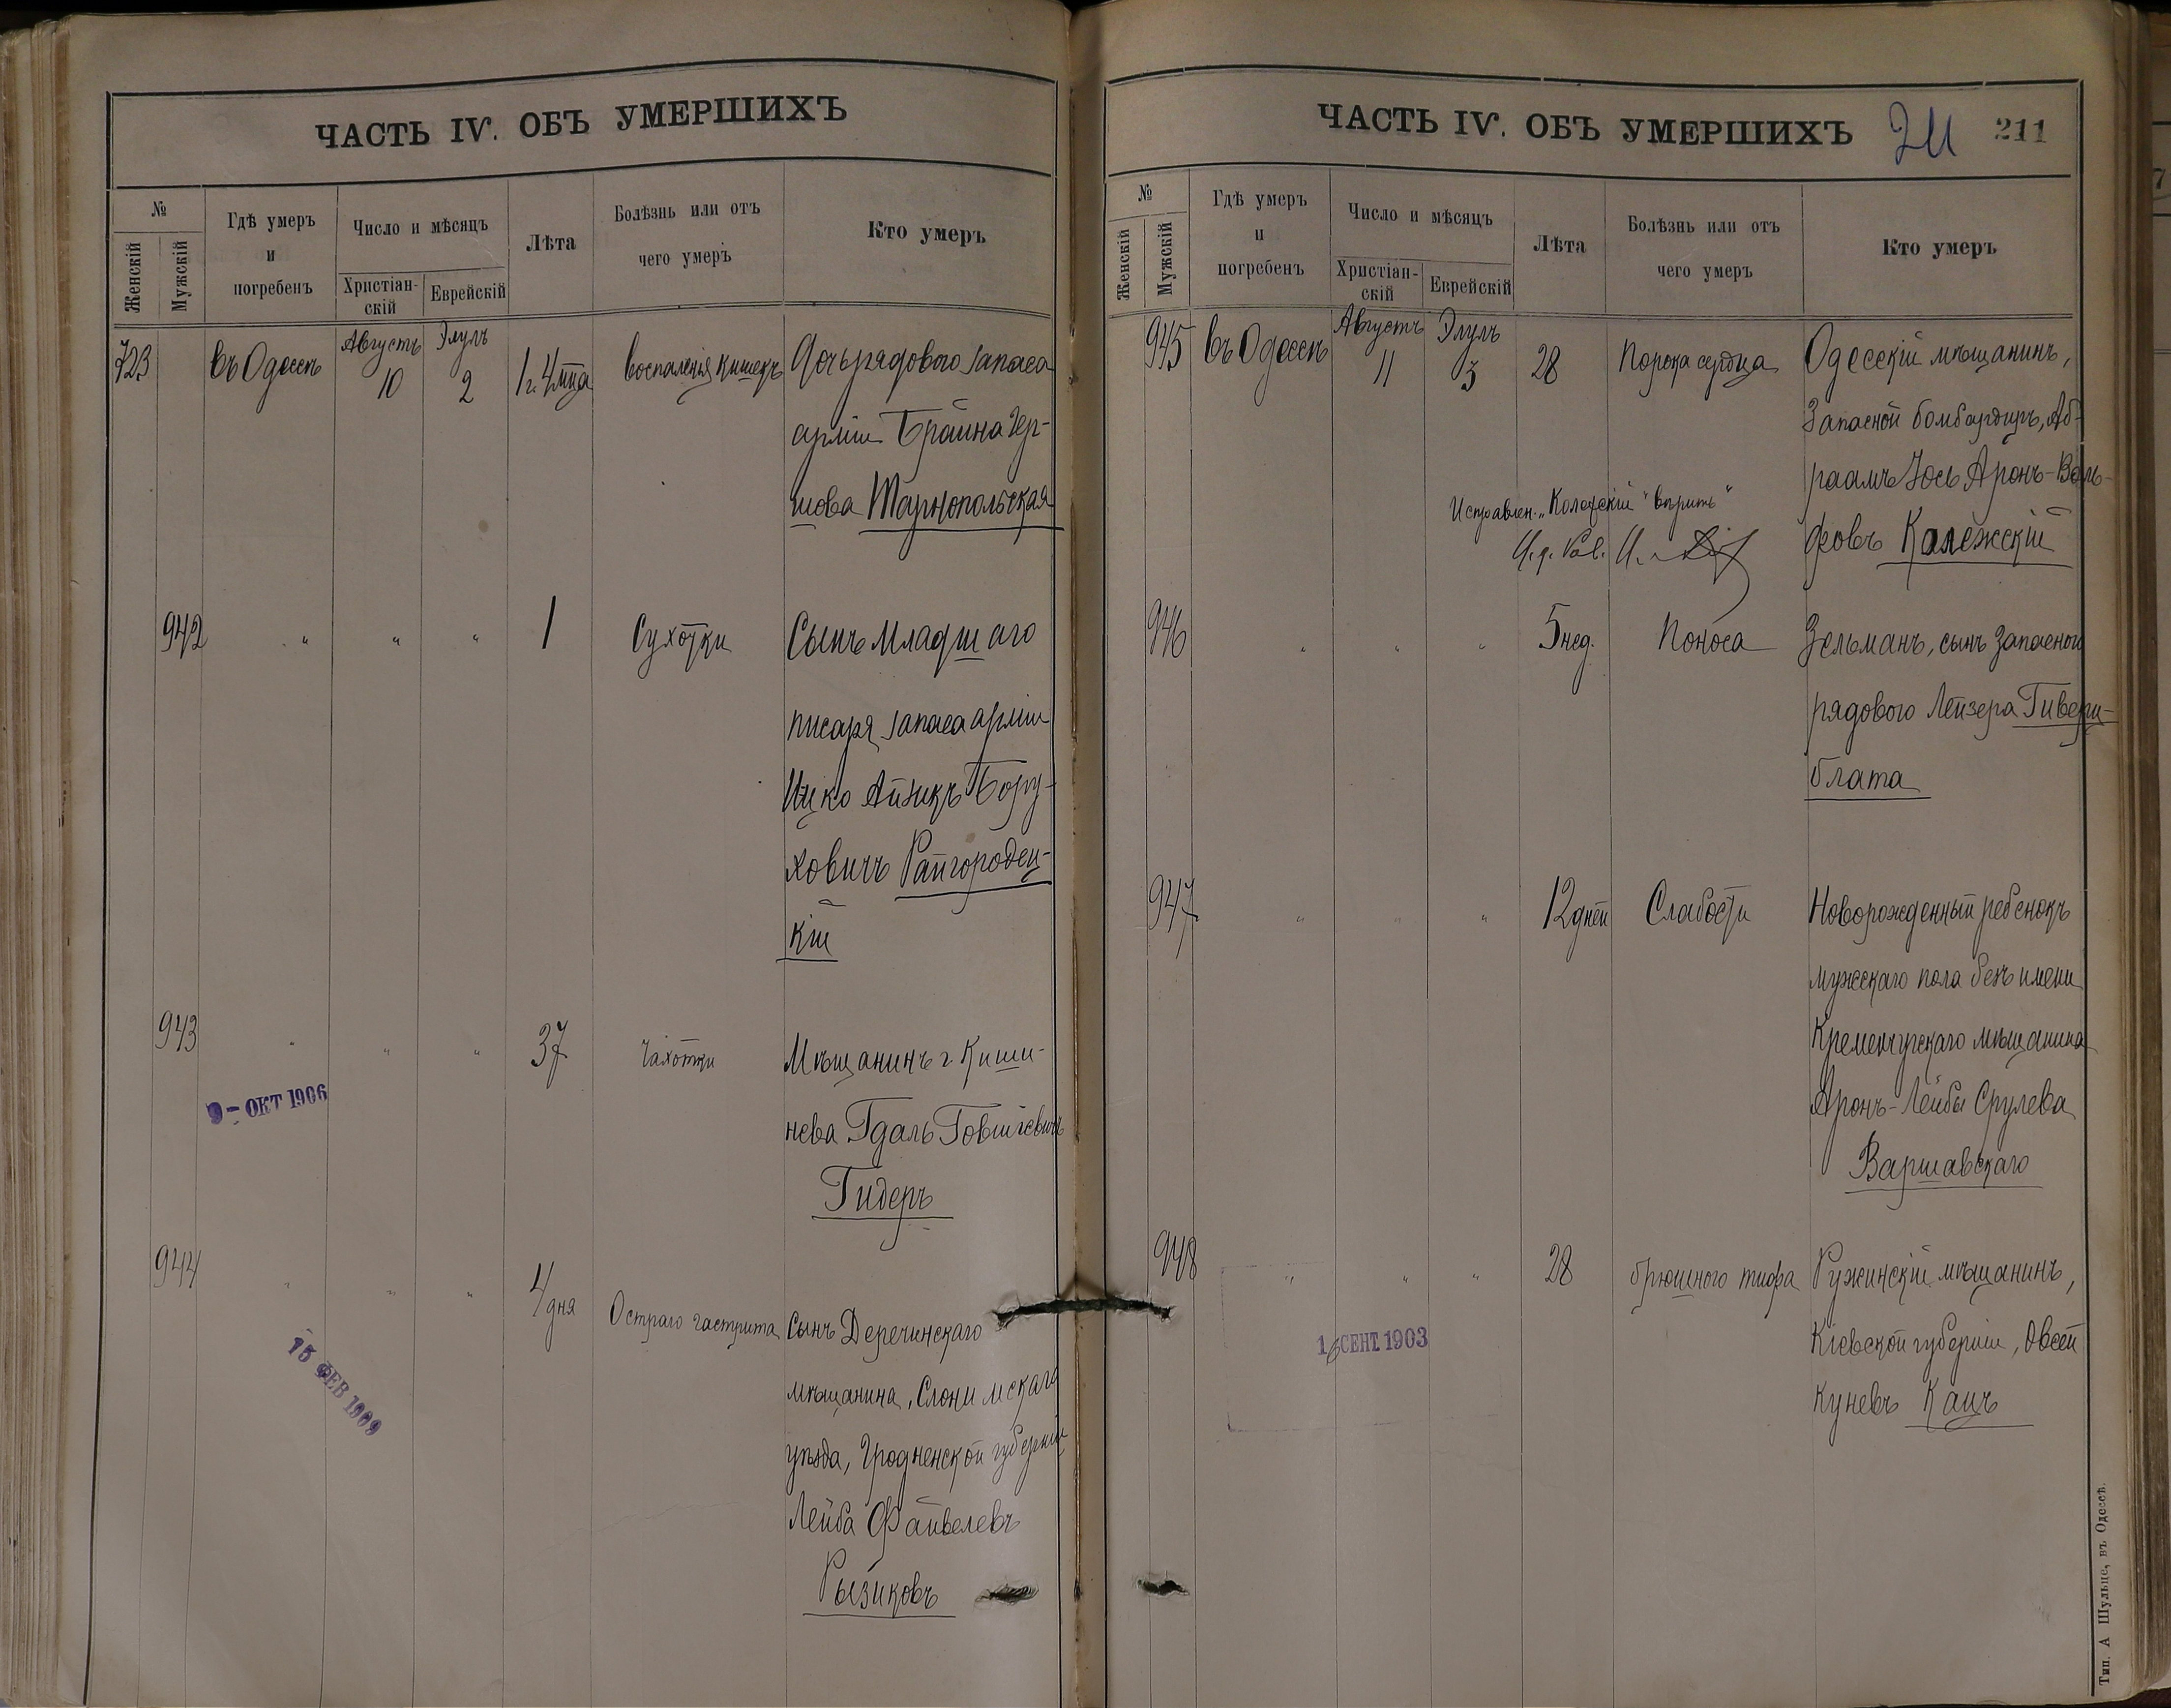 ЧАСТЬ IV. ОБЪ УМЕРШИХЪ
№
Женскій
Мужскій
Гдѣ умеръ
и
погребенъ
Число и мѣсяцъ
Христіан-
скій
Еврейскій
Лѣта
Болѣзнь или отъ
чего умеръ
Кто умеръ
723 въ Одессѣ Августъ 10 Элулъ 2 1 г. 4 мца воспаленія кишекъ Дочь рядового запаса
арміи Брайна Гер-
шова Тарнопольская
942 " " " 1 Сухотки Сынъ младшаго
писаря запаса арміи
Ицко Айзикъ Бору-
ховичъ Райгородец-
кій
943 " " " 37 Чахотки Мѣщанинъ г. Киши-
нева Гдаль Говшіевичъ
Гидеръ
9 - ОКТ 1906
944 " " " 4 дня Остраго гастрита Сынъ Деречинскаго
мѣщанина, Слонимскаго
уѣзда, Гродненской губерніи
Лейба Файвелевъ
Рызиковъ
15 ФЕВ 1909
ЧАСТЬ IV. ОБЪ УМЕРШИХЪ 211 211
№
Женскій
Мужскій
Гдѣ умеръ
и
погребенъ
Число и мѣсяцъ
Христіан-
скій
Еврейскій
Лѣта
Болѣзнь или отъ
чего умеръ
Кто умеръ
945 въ Одессѣ Августъ 11 Элулъ 3 28 Порока сердца Одесскій мѣщанинъ,
Запасной бомбардиръ, Аб-
раамъ Іось Аронъ-Воль-
фовъ Калежскій
Исправлен. "Калежскій" вѣрить
И. д. Рав.
946 " " " 5 нед. Поноса Зельманъ, сынъ запасного
рядового Лейзера Гивери-
блата
947 " " " 12 дней Слабости Новорожденный ребенокъ
мужскаго пола безъ имени
Кременчугскаго мѣщанина
Аронъ-Лейбы Срулева
Варшавскаго
948 " " " 28 брюшного тифа Ружинскій мѣщанинъ,
Кіевской губерніи, Овсей
Куневъ Кацъ
16 СЕНТ. 1903
Тип. А Шульце, въ Одессѣ.